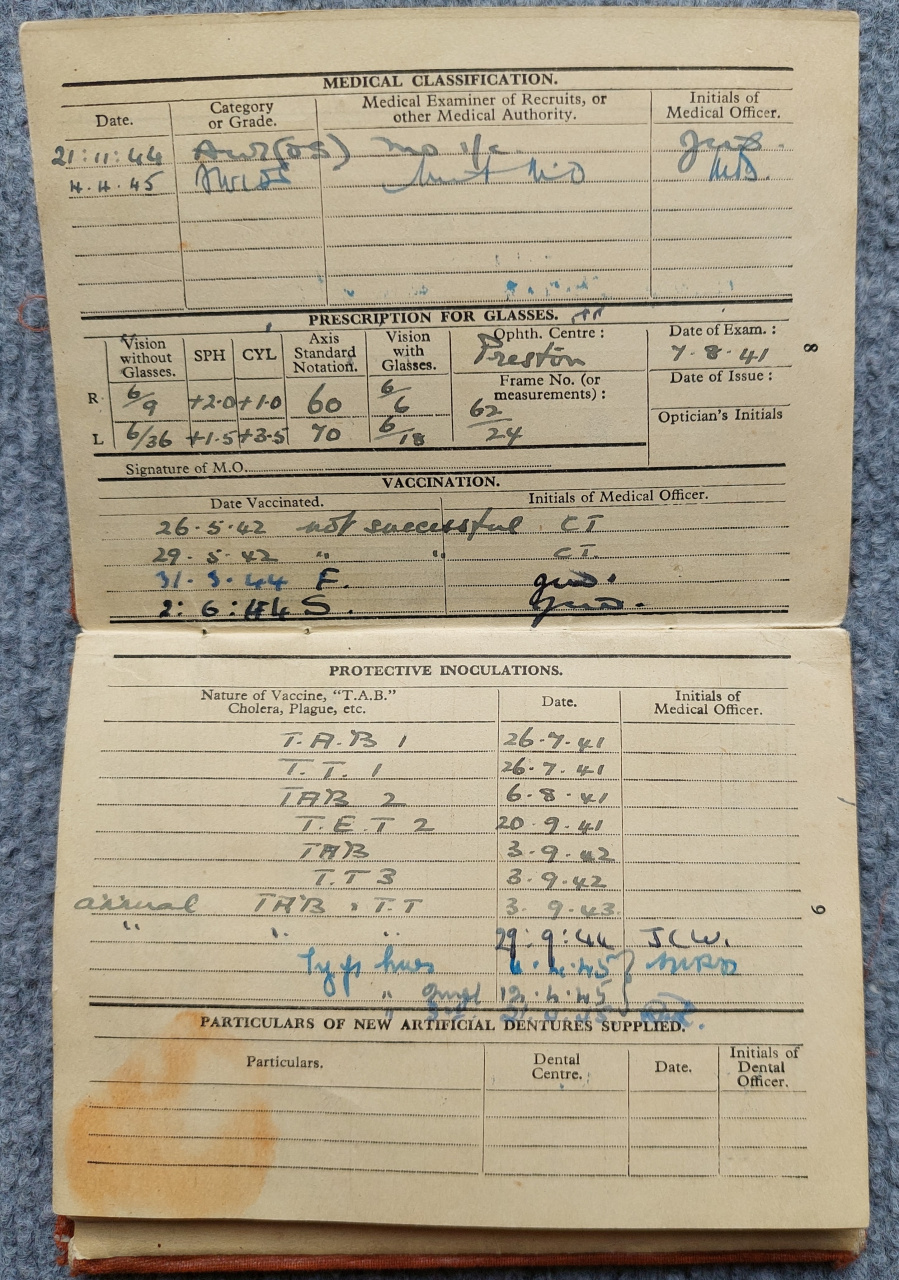 MEDICAL CLASSIFICATION.
Date. Category or Grade. Medical Examiner of Recruits, or other Medical Authority. Initials of Medical Officer.
21:11:44 MO i/c
4.4.45 MO
PRESCRIPTION FOR GLASSES.
Vision without Glasses. SPH CYL Axis Standard Notation. Vision with Glasses. Ophth. Centre : Preston Date of Exam. : 7.8.41
R 6/9 +2.0 +1.0 60 6/6 Frame No. (or measurements) : 62/24 Date of Issue :
L 6/36 +1.5 +3.5 70 6/18 Optician's Initials
Signature of M.O.
8
VACCINATION.
Date Vaccinated. Initials of Medical Officer.
26.5.42 not successful CI
29.5.42 " " CI.
31.3.44 F.
2:6:44 S.
PROTECTIVE INOCULATIONS.
Nature of Vaccine, "T.A.B." Cholera, Plague, etc. Date. Initials of Medical Officer.
T.A.B 1 26.7.41
T.T. 1 26.7.41
TAB 2 6.8.41
T.E.T 2 20.9.41
TAB 3.9.42
T.T 3 3.9.42
annual TAB T.T 3.9.43.
" " " 29:9:44 J.C.W.
Typhus 4.4.45
" 2nd 12.4.45
" 3rd 21.4.45
9
PARTICULARS OF NEW ARTIFICIAL DENTURES SUPPLIED.
Particulars. Dental Centre. Date. Initials of Dental Officer.